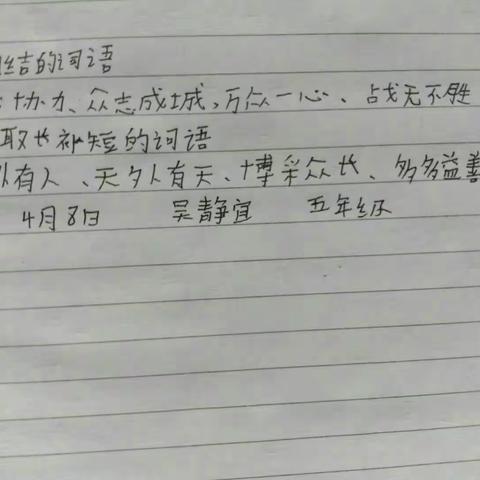 结的词语
协力、众志成城,万众一心、战无不胜
取长补短的词语
外有人、天外有天、博采众长、多多益善
4月8日 吴静宜 五年级